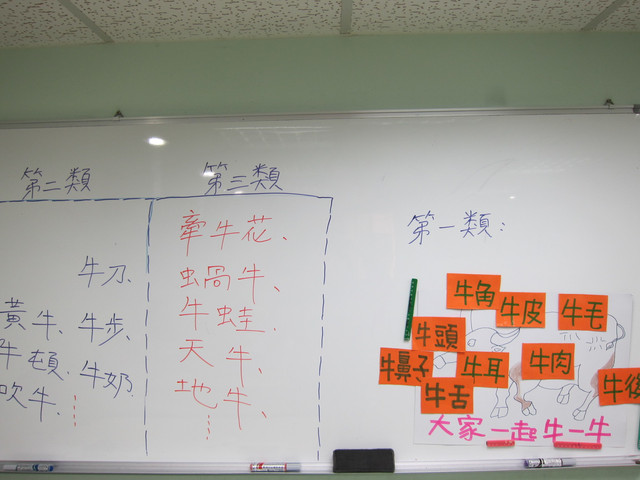 第二類
牛刀、
黃牛、牛步、
牛頓、牛奶、
吹牛、
第三類
牽牛花、
蝸牛、
牛蛙、
天牛、
地牛、
第一類:
牛角
牛皮
牛毛
牛頭
牛鼻子
牛耳
牛肉
牛舌
大家一起牛一牛